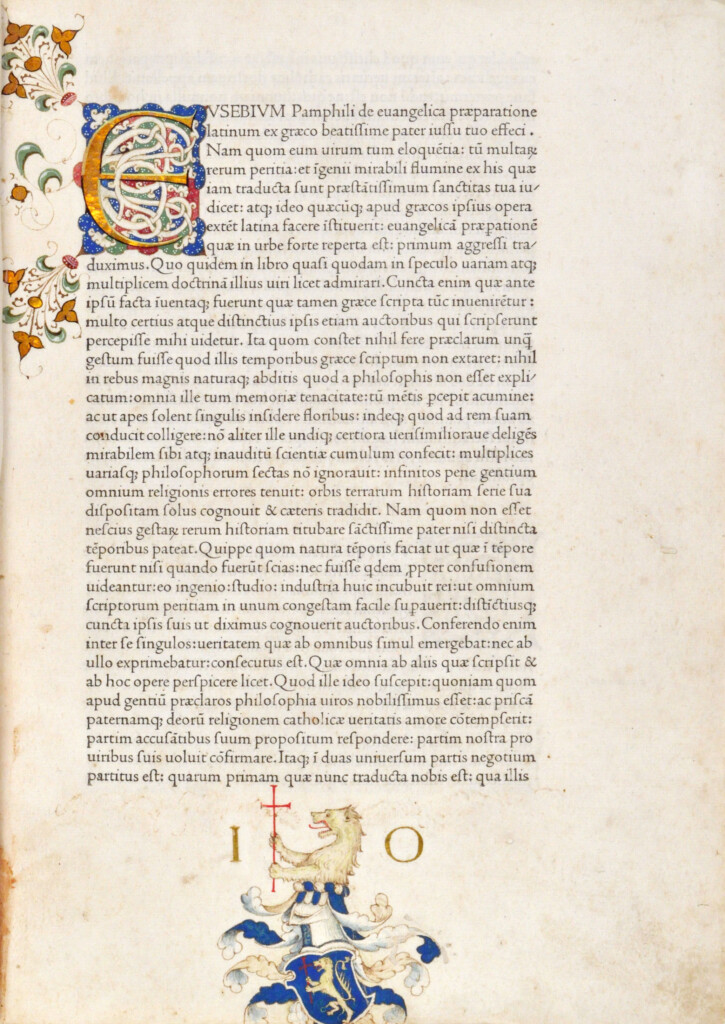 EVSEBIVM Pamphili de euangelica præparatione
latinum ex græco beatiſſime pater iuſſu tuo effeci.
Nam quom eum uirum tum eloquētia: tū multaꝝ
rerum peritia: et īgenii mirabili flumine ex his quæ
iam traducta ſunt præſtātiſſimum ſanctitas tua iu/
dicet: atq; ideo quæcūq; apud græcos ipſius opera
extēt latina facere īſtituerit: euangelicā præpationē
quæ in urbe forte reperta eſt: primum aggreſſi tra/
duximus. Quo quidem in libro quaſi quodam in ſpeculo uariam atq;
multiplicem doctrinā illius uiri licet admirari. Cuncta enim quæ ante
ipſū facta īuentaq; fuerunt quæ tamen græce ſcripta tūc inuenirētur:
multo certius atque diſtinctius ipſis etiam auctoribus qui ſcripſerunt
percepiſſe mihi uidetur. Ita quom conſtet nihil fere præclarum unq̄
geſtum fuiſſe quod illis temporibus græce ſcriptum non extaret: nihil
in rebus magnis naturaq; abditis quod a philoſophis non eſſet expli/
catum: omnia ille tum memoriæ tenacitate: tū mētis pcepit acumine:
ac ut apes ſolent ſingulis inſidere floribus: indeq; quod ad rem ſuam
conducit colligere: nō aliter ille undiq; certiora ueriſimilioraue deligēs
mirabilem ſibi atq; inauditū ſcientiæ cumulum confecit: multiplices
uariaſq; philoſophorum ſectas nō ignorauit: infinitos pene gentium
omnium religionis errores tenuit: orbis terrarum hiſtoriam ſerie ſua
diſpoſitam ſolus cognouit & cæteris tradidit. Nam quom non eſſet
neſcius geſtaꝝ rerum hiſtoriam titubare ſāctiſſime pater niſi diſtincta
tēporibus pateat. Quippe quom natura tēporis faciat ut quæ ī tēpore
fuerunt niſi quando fuerūt ſcias: nec fuiſſe qdem ꝓpter confuſionem
uideantur: eo ingenio: ſtudio: induſtria huic incubuit rei: ut omnium
ſcriptorum peritiam in unum congeſtam facile ſupauerit: diſtīctiuſq;
cuncta ipſis ſuis ut diximus cognouerit auctoribus. Conferendo enim
inter ſe ſingulos: ueritatem quæ ab omnibus ſimul emergebat: nec ab
ullo exprimebatur: conſecutus eſt. Quæ omnia ab aliis quæ ſcripſit &
ab hoc opere perſpicere licet. Quod ille ideo ſuſcepit: quoniam quom
apud gentiū præclaros philoſophia uiros nobiliſſimus eſſet: ac priſcā
paternamq; deorū religionem catholicæ ueritatis amore cōtempſerit:
partim accuſātibus ſuum propoſitum reſpondere: partim noſtra pro
uiribus ſuis uoluit cōfirmare. Itaq; ī duas uniuerſum partis negotium
partitus eſt: quarum primam quæ nunc traducta nobis eſt: qua illis
I O